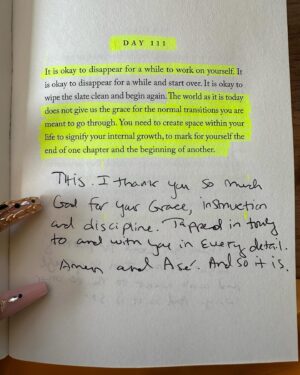 DAY 111
It is okay to disappear for a while to work on yourself. It
is okay to disappear for a while and start over. It is okay to
wipe the slate clean and begin again. The world as it is today
does not give us the grace for the normal transitions you are
meant to go through. You need to create space within your
life to signify your internal growth, to mark for yourself the
end of one chapter and the beginning of another.
This. I thank you so much
God for your Grace, instruction
and discipline. Tapped in truly
to and with you in every detail.
Amen and Asé. And so it is.